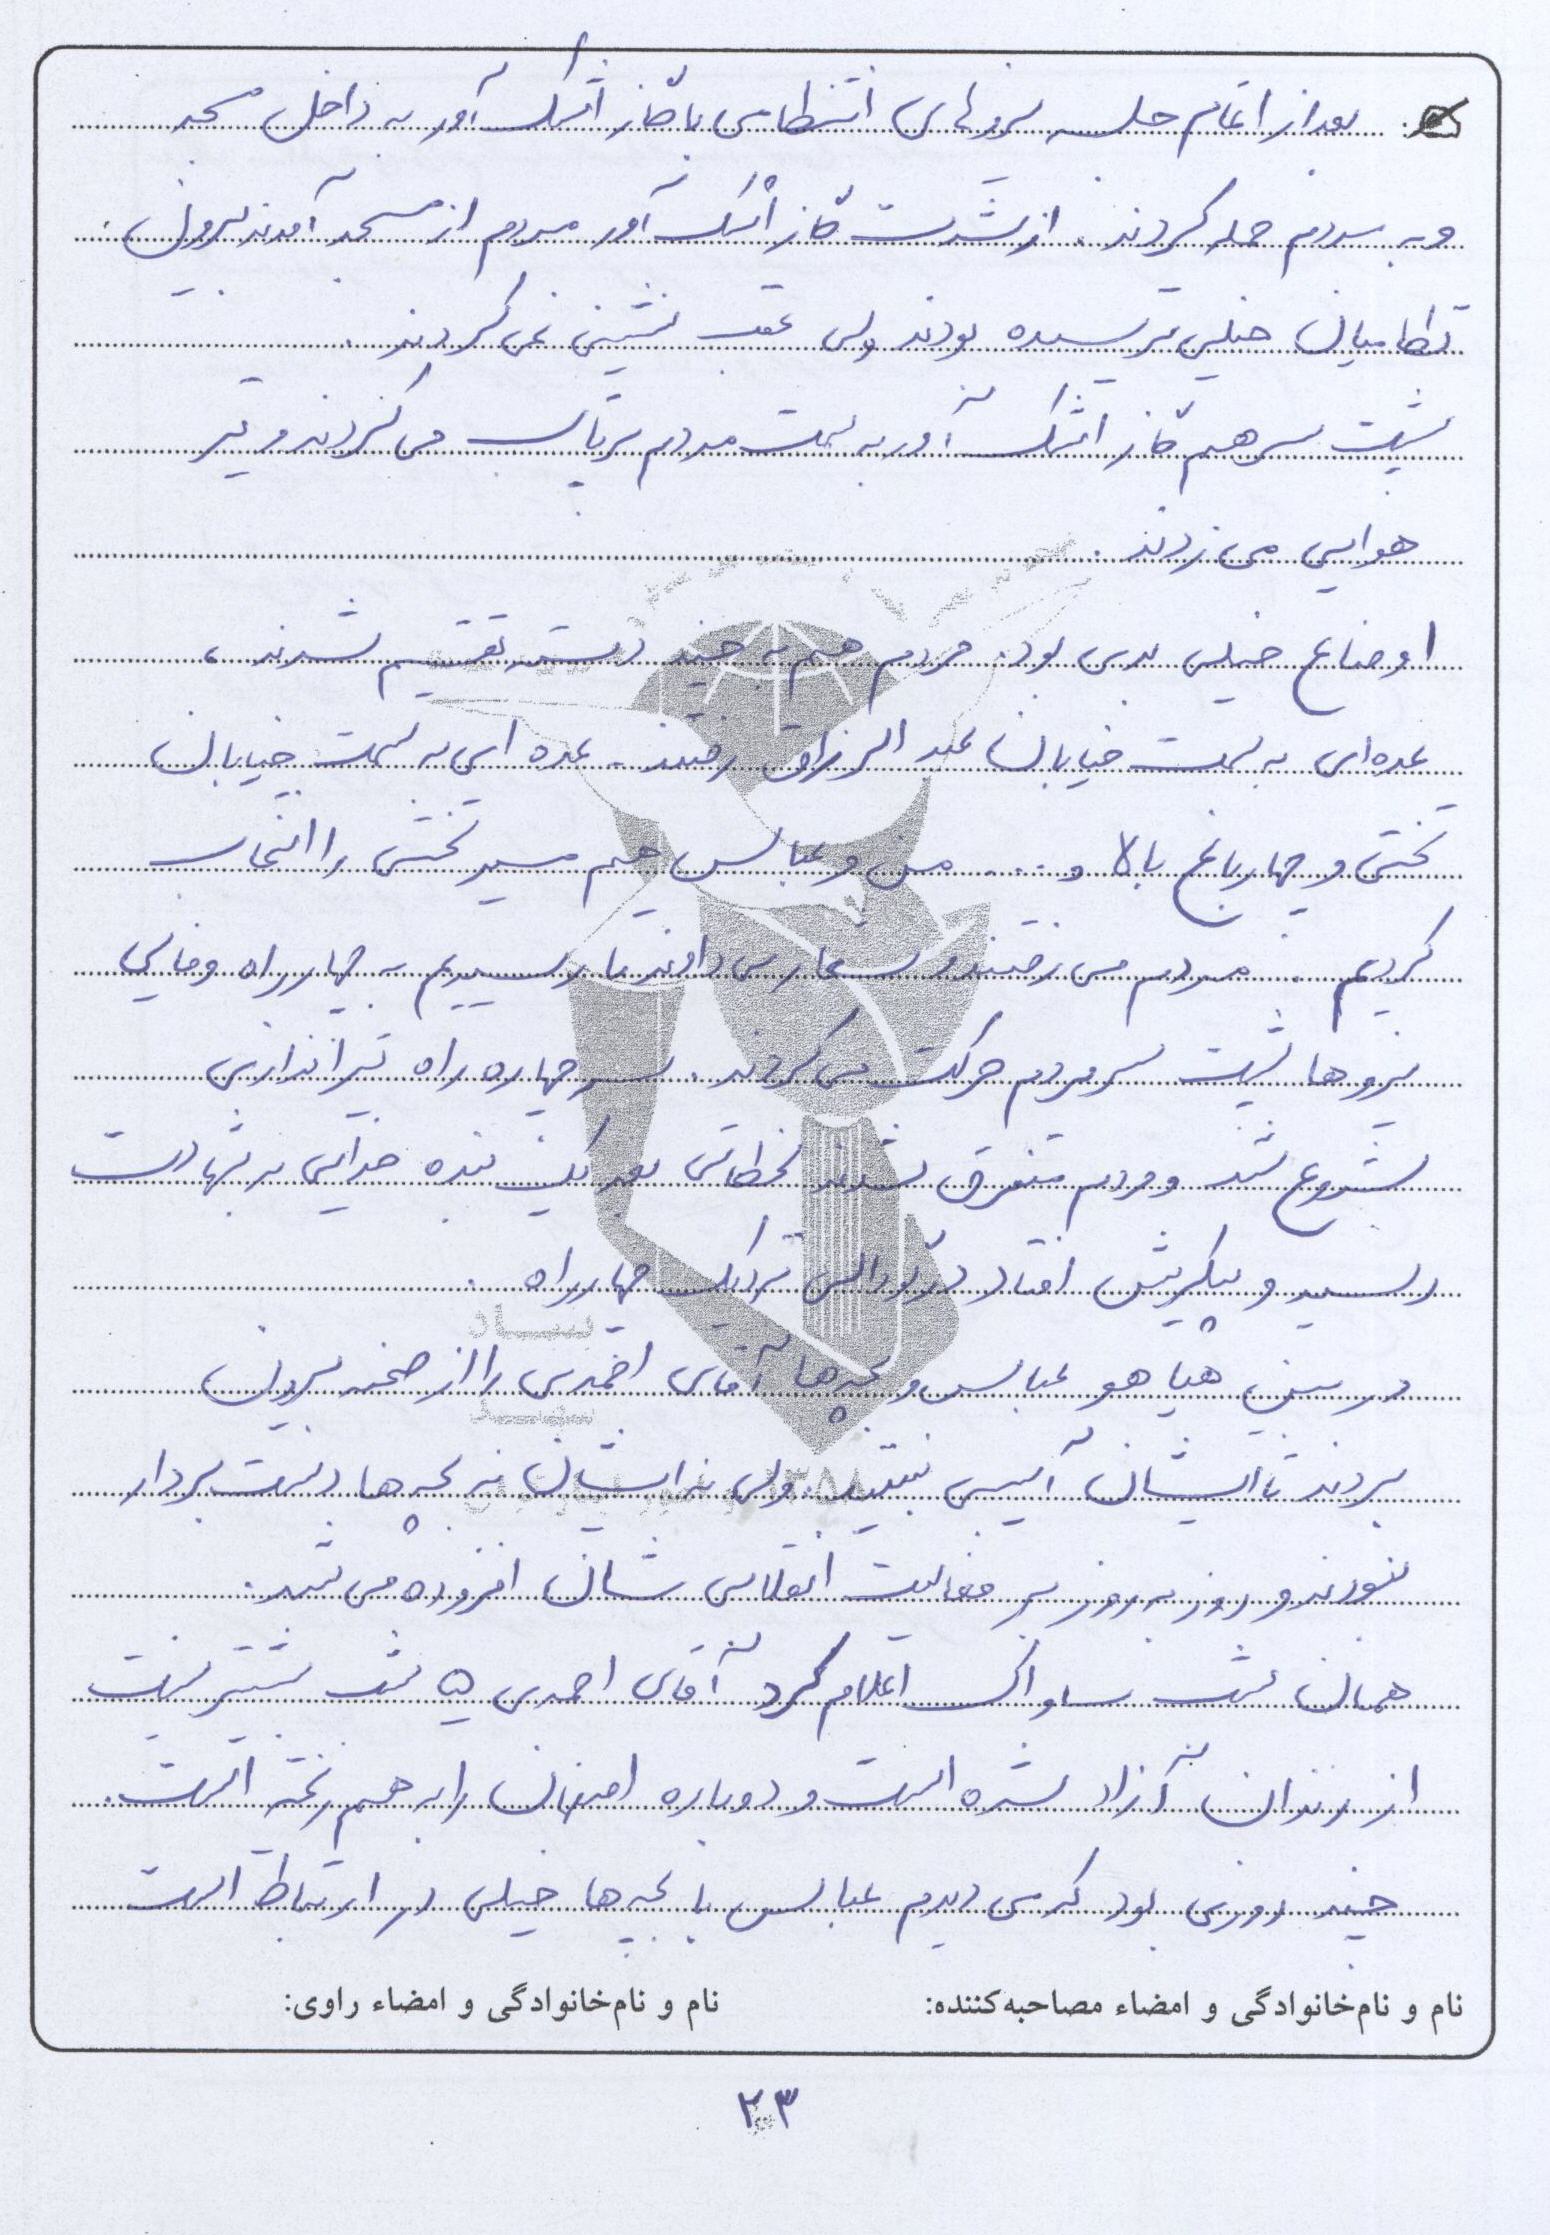 بعد از اتمام جلسه نیروهای انتظامی با گاز اشک آور به داخل مسجد
و به مردم حمله کردند. از شدت گاز اشک آور مردم از مسجد آمدند بیرون.
نظامیان خیلی ترسیده بودند ولی عقب نشینی نمی کردند.
پشت سر هم گاز اشک آور به سمت مردم پرتاب می کردند و تیر
هوایی می زدند.
اوضاع خیلی بدی بود. مردم هم به چند دسته تقسیم شدند،
عده ای به سمت خیابان عبدالرزاق رفتند. عده ای به سمت خیابان
تختی و چهارباغ بالا و .... من و عباس هم مسیر تختی را انتخاب
کردیم. مردم می رفتند و شعار می دادند تا رسیدیم به چهارراه وفایی
نیروها پشت سر مردم حرکت می کردند. سر چهاره راه تیراندازی
شروع شد و مردم متفرق شدند لحظاتی بعد یک بنده خدایی به شهادت
رسید و پیکرش افتاد در نزدیک چهارراه.
در بین هیاهو عباس و بچه ها آقای احمدی را از صحنه بیرون
بردند تا ایشان آسیبی نبیند. ولی نه ایشان نه بچه ها دست بردار
نبودند و روز به روز بر فعالیت انقلابی شان افزوده می شد.
همان شب ساواک اعلام کرد آقای احمدی ۵ شب بیشتر نیست
از زندان آزاد شده است و دوباره اصفهان را به هم ریخته است.
چند روزی بود که می دیدم عباس با بچه ها خیلی در ارتباط است
نام و نام‌خانوادگی و امضاء مصاحبه‌کننده: نام و نام‌خانوادگی و امضاء راوی:
۲۳